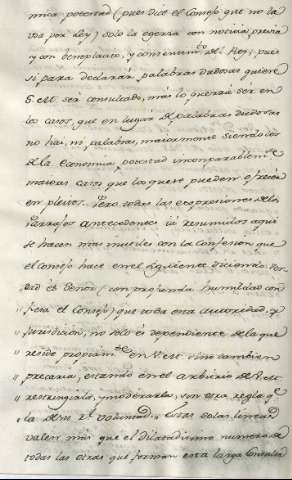 mica potestad (pues dice el Consejo que no la
por ley) solo la egersa con noticia previa
y con beneplacito, y consentim.to del Rey, pues
si para declarar palabras dudosas quiere
S. M. ser consultado, mas lo querrá ser en
los casos, que en lugar de palabras dudosas
no hai, ni palabras, maiormente siendo los
de la Economia, potestad incomparablem.te
maiores casos que los que se pueden ofrecer
en pleitos. Pero todas las expresiones de los
Parrafos antecedentes resumidos aqui
se hacen mas inutiles con la Confesion que
el Consejo hace en el siguiente diciendo Ver
dad es Señor (con profunda humildad con
fiesa el Consejo) que toda esta autoridad, y
jurisdicion, no solo es dependiente de la que
reside propiam.te en V. M. sino tambien
precaria, estando en el arbitrio de V. M.
restringirla, y moderarla, sin otra regla q.e
la de su R.l voluntad. Estas solas lineas
valen mas que el dilatadisimo numero de
todas las otras que forman esta larga Consulta